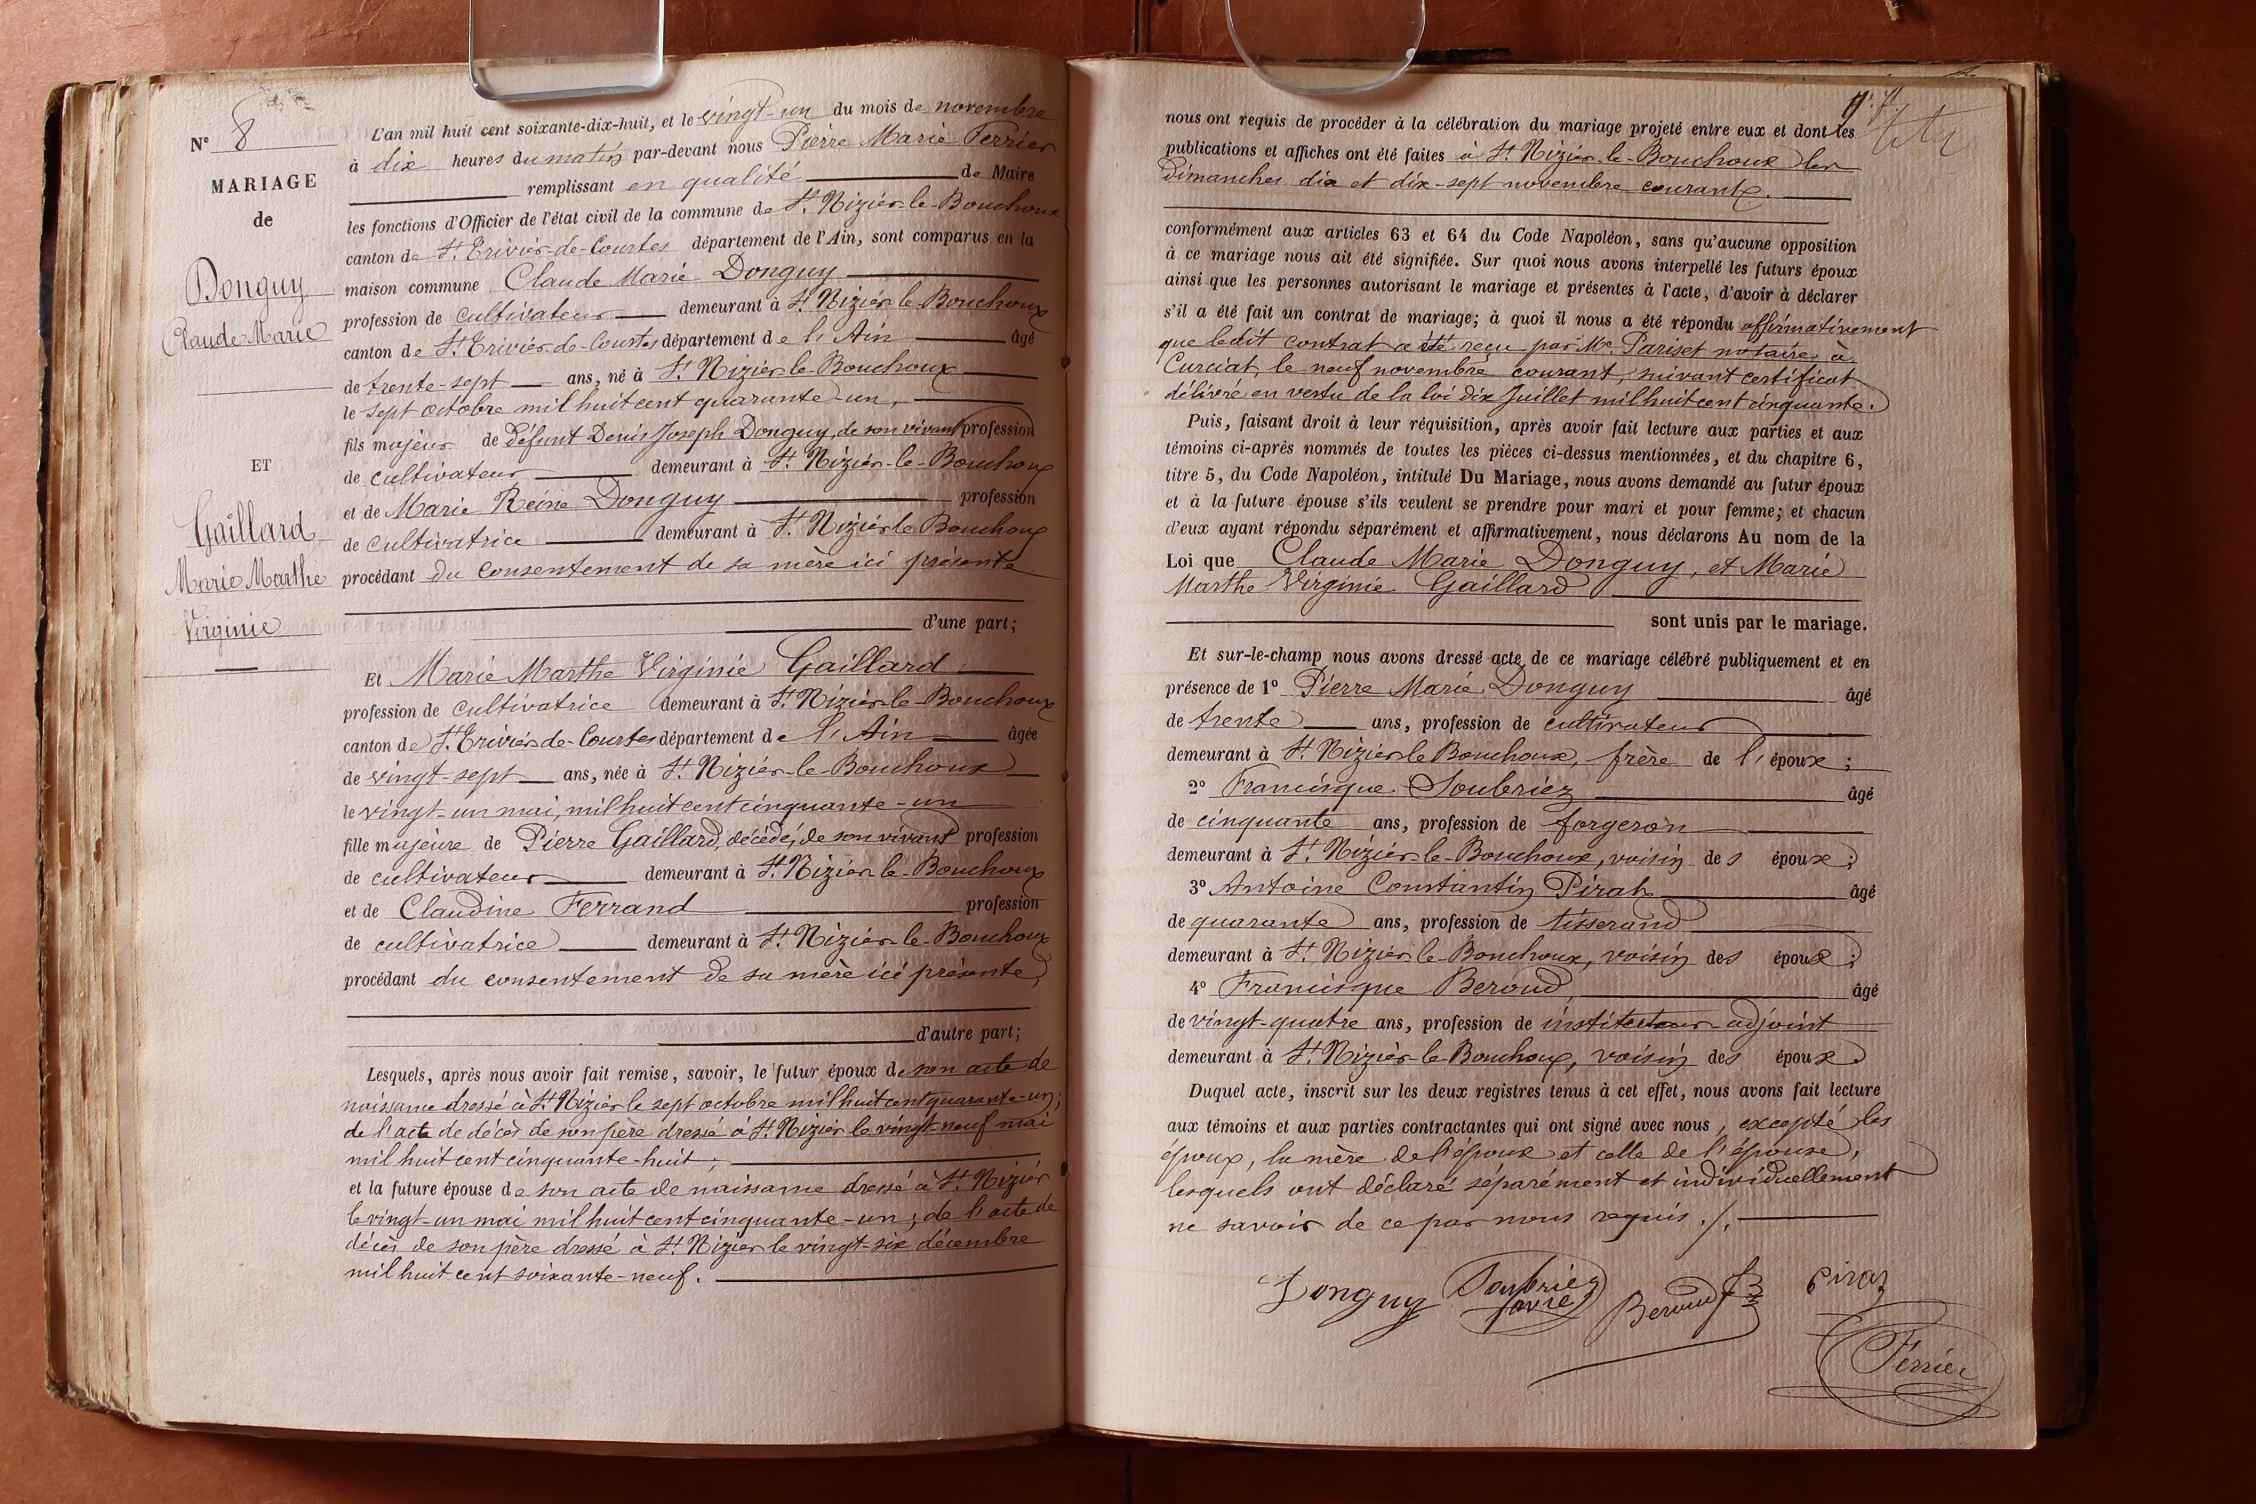 N° 8
MARIAGE
de
Donguy
Claude Marie
ET
Gaillard
Marie Marthe
Virginie
L'an mil huit cent soixante-dix-huit, et le vingt-un du mois de novembre
à dix heures du matin par-devant nous Pierre Marie Ferrier
remplissant en qualité de Maire
les fonctions d'Officier de l'état civil de la commune de St Nizier-le-Bouchoux
canton de St Trivier-de-Courtes département de l'Ain, sont comparus en la
maison commune Claude Marie Donguy
profession de cultivateur demeurant à St Nizier-le-Bouchoux
canton de St Trivier-de-Courtes département de l'Ain âgé
de trente-sept ans, né à St Nizier-le-Bouchoux
le sept octobre mil huit cent quarante-un,
fils majeur de défunt Denis Joseph Donguy, de son vivant profession
de cultivateur demeurant à St Nizier-le-Bouchoux
et de Marie Reine Donguy profession
de cultivatrice demeurant à St Nizier-le-Bouchoux
procédant du consentement de sa mère ici présente
d'une part;
Et Marie Marthe Virginie Gaillard
profession de cultivatrice demeurant à St Nizier-le-Bouchoux
canton de St Trivier-de-Courtes département de l'Ain âgée
de vingt-sept ans, née à St Nizier-le-Bouchoux
le vingt-un mai, mil huit cent cinquante-un
fille majeure de Pierre Gaillard, décédé, de son vivant profession
de cultivateur demeurant à St Nizier-le-Bouchoux
et de Claudine Ferrand profession
de cultivatrice demeurant à St Nizier-le-Bouchoux
procédant du consentement de sa mère ici présente,
d'autre part;
Lesquels, après nous avoir fait remise, savoir, le futur époux de son acte de
naissance dressé à St Nizier le sept octobre mil huit cent quarante-un;
de l'acte de décès de son père dressé à St Nizier le vingt-neuf mai
mil huit cent cinquante-huit;
et la future épouse de son acte de naissance dressé à St Nizier
le vingt-un mai mil huit cent cinquante-un; de l'acte de
décès de son père dressé à St Nizier le vingt-six décembre
mil huit cent soixante-neuf.
nous ont requis de procéder à la célébration du mariage projeté entre eux et dont les
publications et affiches ont été faites à St Nizier-le-Bouchoux les
dimanches dix et dix-sept novembre courant.
conformément aux articles 63 et 64 du Code Napoléon, sans qu'aucune opposition
à ce mariage nous ait été signifiée. Sur quoi nous avons interpellé les futurs époux
ainsi que les personnes autorisant le mariage et présentes à l'acte, d'avoir à déclarer
s'il a été fait un contrat de mariage; à quoi il nous a été répondu affirmativement
que ledit contrat a été reçu par Me Pariset notaire à
Curciat, le neuf novembre courant, suivant certificat
délivré en vertu de la loi dix Juillet mil huit cent cinquante.
Puis, faisant droit à leur réquisition, après avoir fait lecture aux parties et aux
témoins ci-après nommés de toutes les pièces ci-dessus mentionnées, et du chapitre 6,
titre 5, du Code Napoléon, intitulé Du Mariage, nous avons demandé au futur époux
et à la future épouse s'ils veulent se prendre pour mari et pour femme; et chacun
d'eux ayant répondu séparément et affirmativement, nous déclarons Au nom de la
Loi que Claude Marie Donguy, et Marie
Marthe Virginie Gaillard
sont unis par le mariage.
Et sur-le-champ nous avons dressé acte de ce mariage célébré publiquement et en
présence de 1° Pierre Marie Donguy âgé
de trente ans, profession de cultivateur
demeurant à St Nizier le Bouchoux, frère de l'époux;
2° Francisque Soubriez âgé
de cinquante ans, profession de forgeron
demeurant à St Nizier-le-Bouchoux, voisin des époux;
3° Antoine Constantin Pirat âgé
de quarante ans, profession de tisserand
demeurant à St Nizier-le-Bouchoux, voisin des époux;
4° Francisque Beroud, âgé
de vingt-quatre ans, profession de instituteur-adjoint
demeurant à St Nizier-le-Bouchoux, voisin des époux
Duquel acte, inscrit sur les deux registres tenus à cet effet, nous avons fait lecture
aux témoins et aux parties contractantes qui ont signé avec nous, excepté les
époux, la mère de l'époux et celle de l'épouse,
lesquels ont déclaré séparément et individuellement
ne savoir de ce par nous requis./.
Donguy Soubriez Beroud Piraz
Ferrier